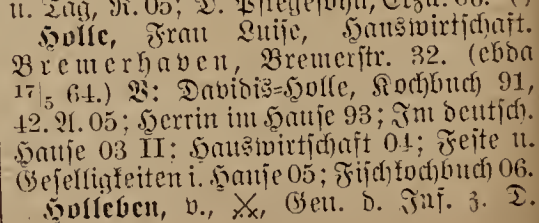 u. Tag, R. 05; D. Pflegesohn, Erzä. 06.
Holle, Frau Luise, Hauswirtschaft.
Bremerhaven, Bremerstr. 32. (ebda
17|5 64.) V: Davidis=Holle, Kochbuch 91,
42. A. 05; Herrin im Hause 93; Im deutsch.
Hause 03 II; Hauswirtschaft 04; Feste u.
Geselligkeiten i. Hause 05; Fischkochbuch 06.
Holleben, v., ⚔, Gen. d. Inf. z. D.